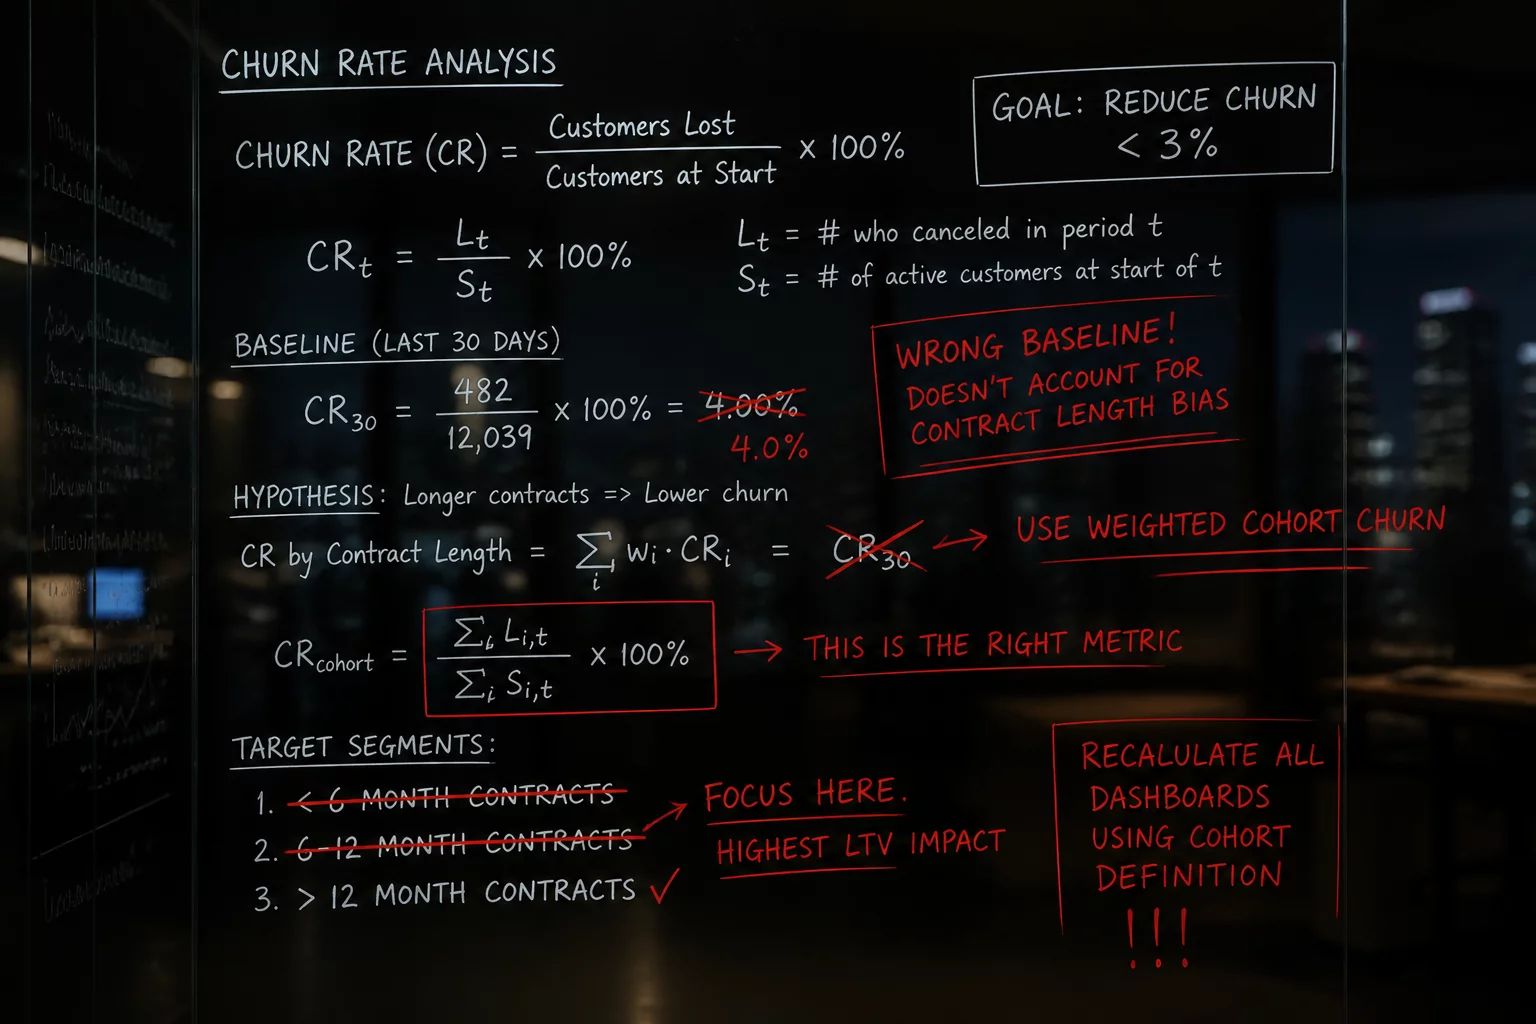 CHURN RATE ANALYSIS
GOAL: REDUCE CHURN
< 3%
CHURN RATE (CR) = Customers Lost / Customers at Start x 100%
CR_t = L_t / S_t x 100%
L_t = # who canceled in period t
S_t = # of active customers at start of t
BASELINE (LAST 30 DAYS)
CR_30 = 482 / 12,039 x 100% = 4.00%
4.0%
WRONG BASELINE!
DOESN'T ACCOUNT FOR
CONTRACT LENGTH BIAS
HYPOTHESIS: Longer contracts => Lower churn
CR by Contract Length = ∑_i w_i · CR_i = CR_30 → USE WEIGHTED COHORT CHURN
CR_cohort = ∑_i L_i,t / ∑_i S_i,t x 100% → THIS IS THE RIGHT METRIC
TARGET SEGMENTS:
1. < 6 MONTH CONTRACTS
2. 6-12 MONTH CONTRACTS
3. > 12 MONTH CONTRACTS ✓
→ FOCUS HERE.
HIGHEST LTV IMPACT
RECALULATE ALL
DASHBOARDS
USING COHORT
DEFINITION
!!!